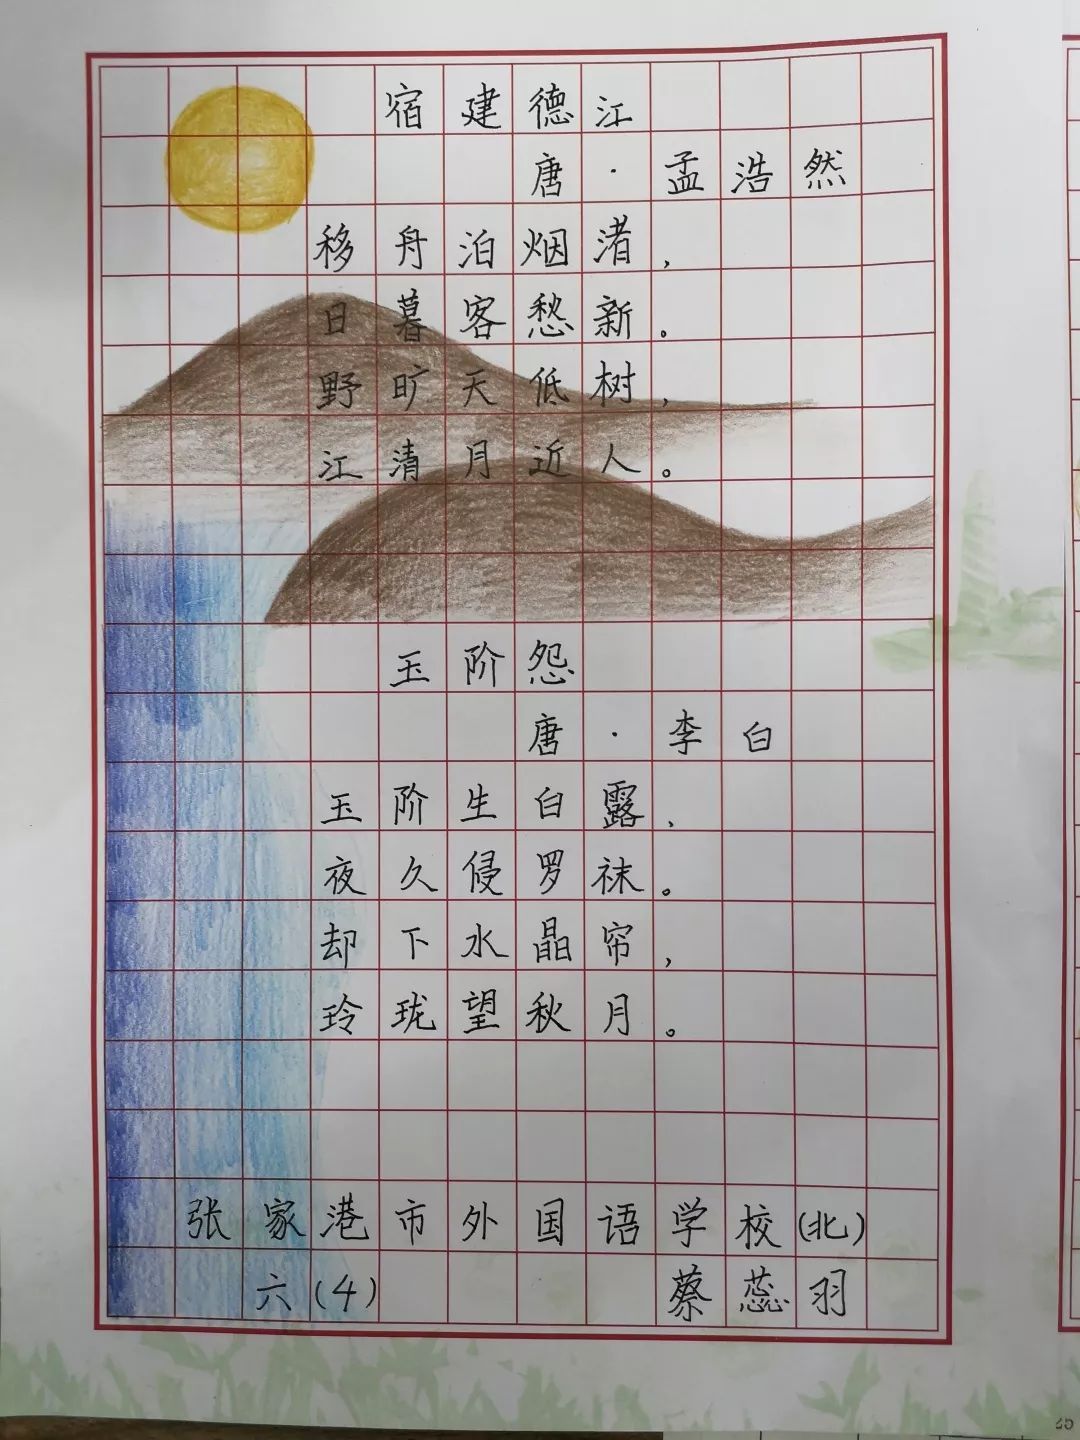 宿建德江
唐·孟浩然
移舟泊烟渚，
日暮客愁新。
野旷天低树，
江清月近人。
玉阶怨
唐·李白
玉阶生白露，
夜久侵罗袜。
却下水晶帘，
玲珑望秋月。
张家港市外国语学校(北)
六(4) 蔡蕊羽